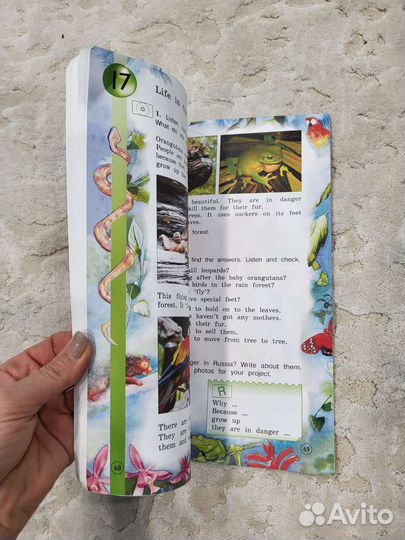 17
Life in
1. Listen
What do
Orangutans
People are
because
grow up
This flying
forest. It
There are
They are
them and
68
beautiful. They are in danger
kill them for their fur.
trees. It uses suckers on its feet
leaves.
forest.
find the answers. Listen and check.
kill leopards?
after the baby orangutans?
birds in the rain forest?
"fly"?
have special feet?
to hold on to the leaves.
haven't got any mothers.
their fur.
to move from tree to tree.
in Russia? Write about them.
photos for your project.
R
Why ...
Because ...
grow up
they are in danger ...
69
Avito